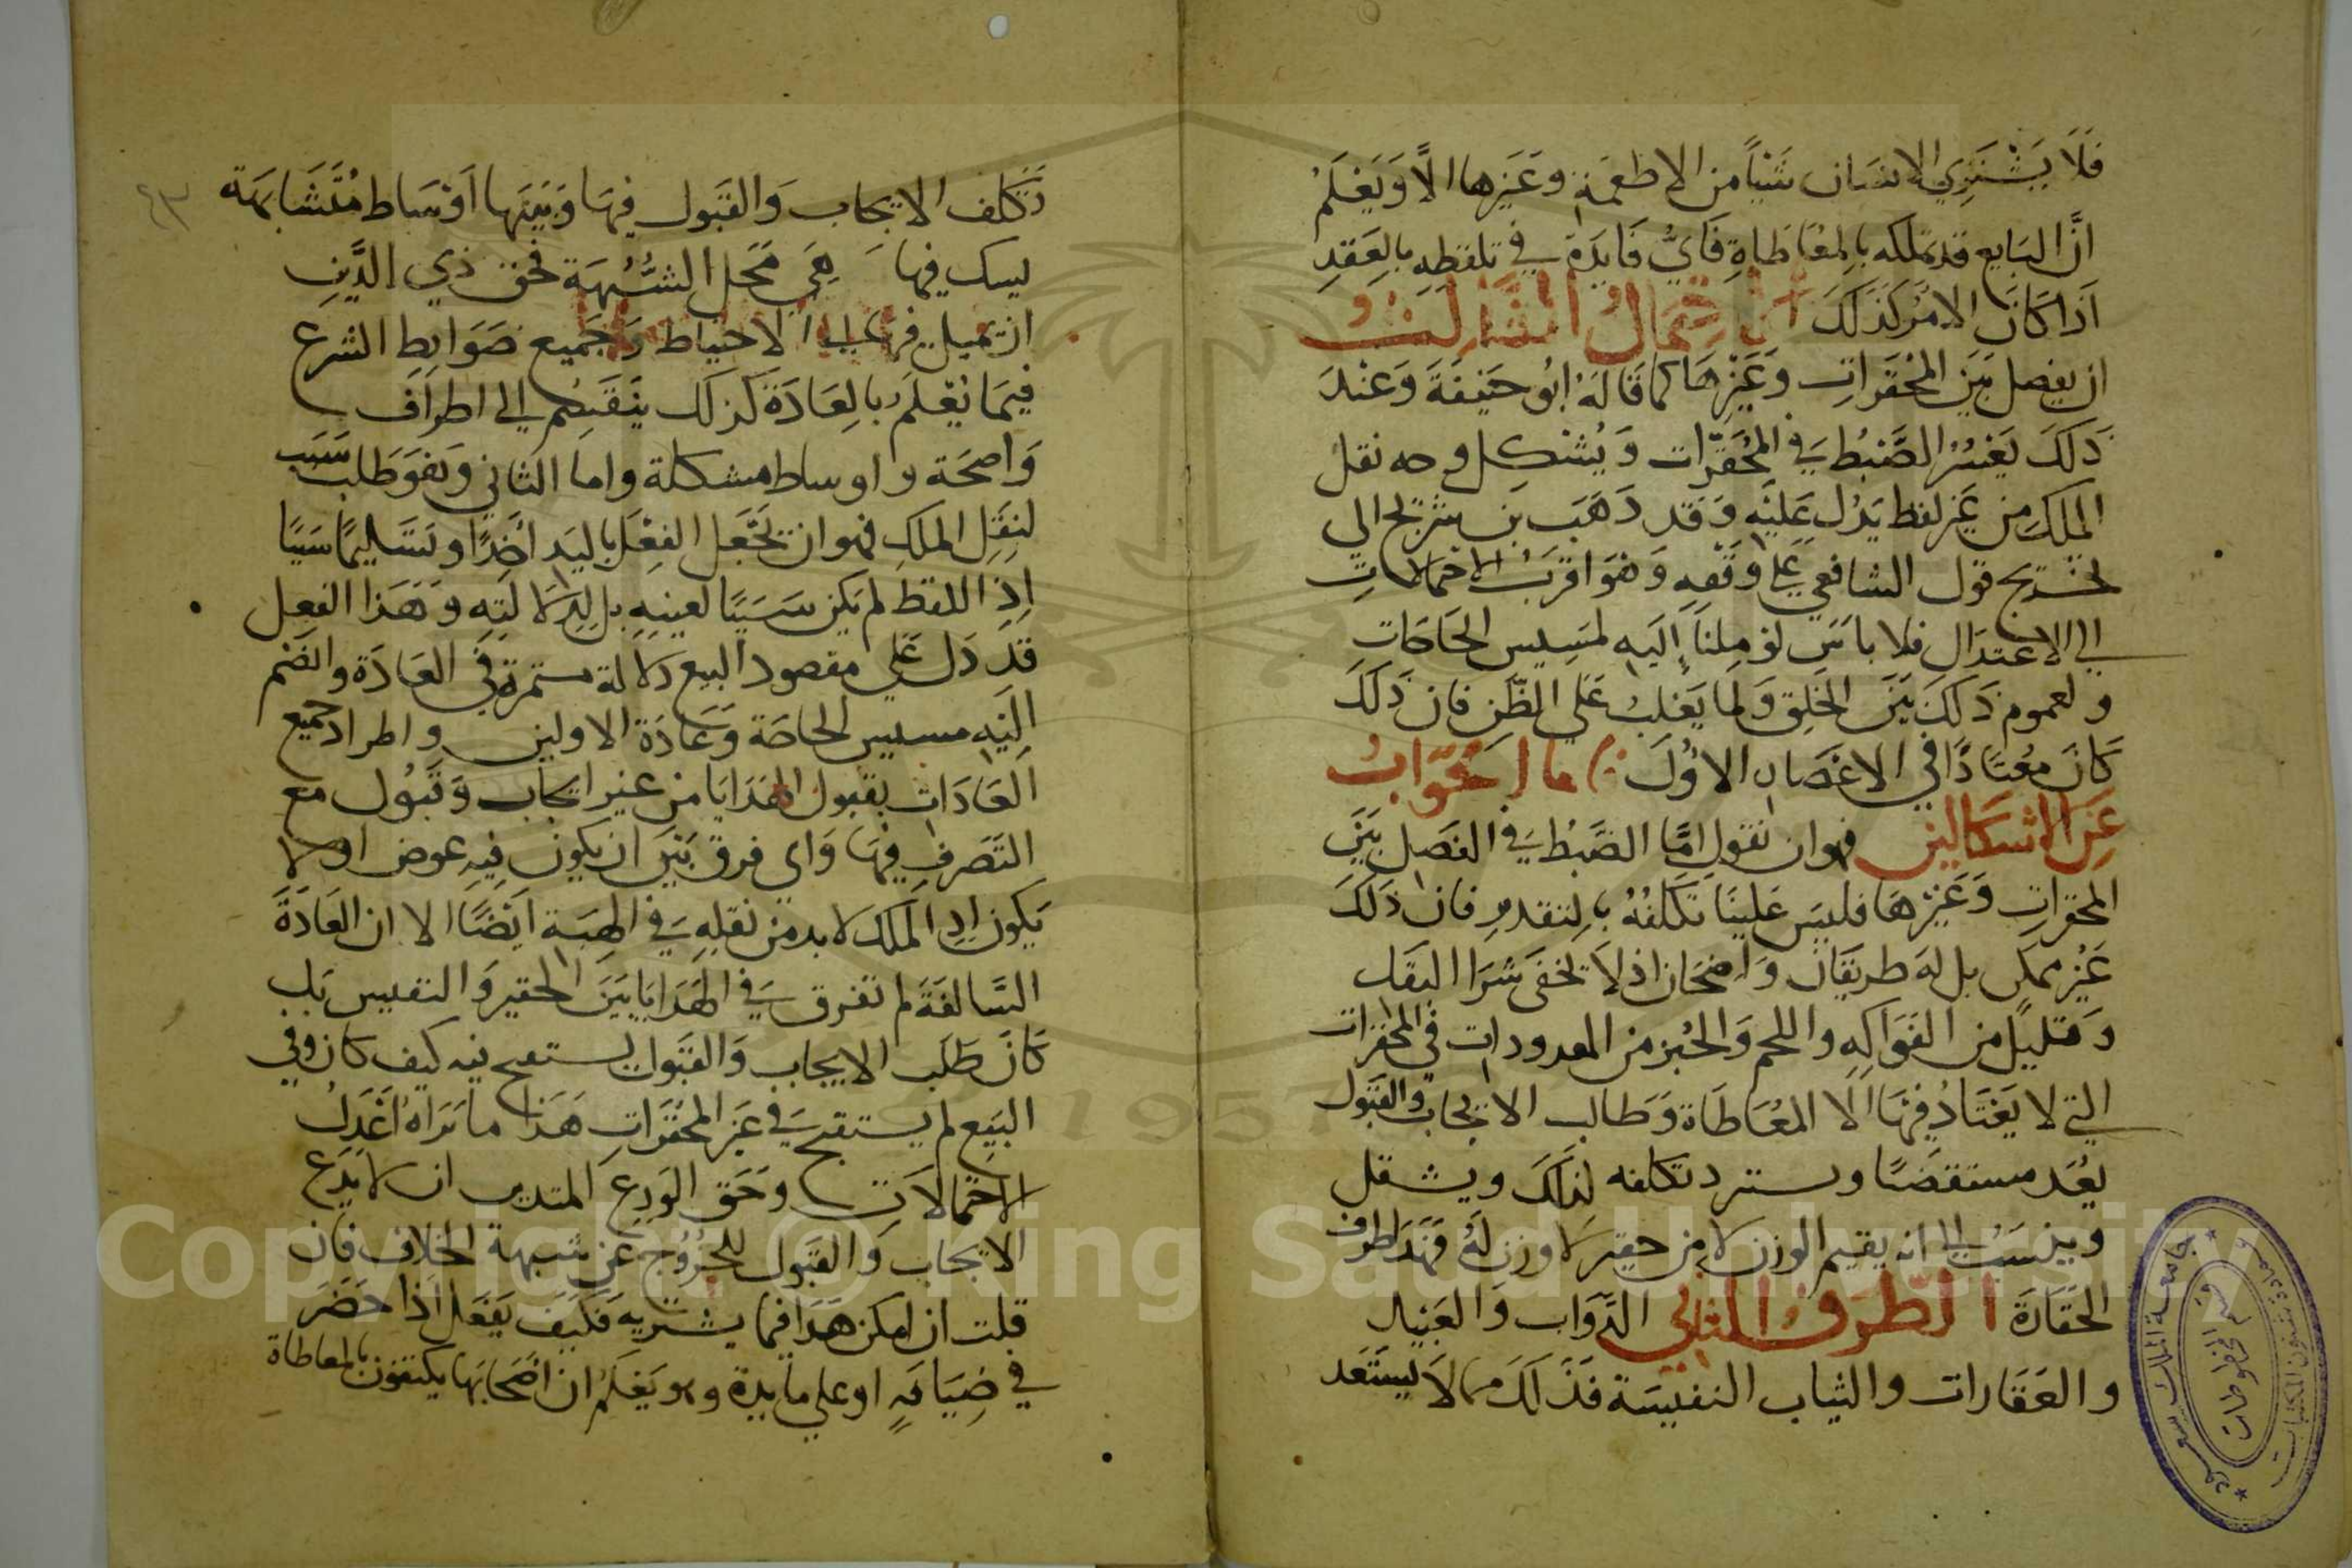 فَلَا يَشْتَرِي الانسَان شَيْئاً من الاطعمَة وغَيْرها الاَّ وَيَعْلَمُ
انَّ البَايع قد تملكه بالمعَاطَاةِ فَايُّ فَايدَة في تلفظه بالعَقدِ
اذَا كانَ الامْر كَذَلكَ الاحتمالُ الثَّالثُ
ان يفصل بَيْنَ المُحَقَّرَاتِ وَغَيْرهَا كما قَالهُ ابُو حَنِيفَةَ وَعنْدَ
ذَلكَ يَعْسُرُ الضَّبْطُ في المُحَقَّرَات وَيُشْكِل وجه نقل
الملكِ من غَيْر لفظ يَدُل عَلَيْهِ وَقَد ذَهَبَ بن سُرَيْج الي
تخريج قول الشافعي علي وَفْقهِ وَهُوَ اقْرَبُ الاحتمالاتِ
الي الاعتدَالِ فلا باسَ لوْ مِلنَا إليَه لمَسِيس الحَاجَاتِ
ولعموم ذَلكَ بَيْنَ الخَلق وَلما يَغْلبُ عَلي الظّن فان ذَلكَ
كَانَ معْتَادًا في الاعْصَارِ الاوُلَ فاما الجَوَابُ
عَن الاشكَالين فهوان نقول امَّا الضَّبْطُ في الفَصل بَيْنَ
المحقراتِ وَغَيْرهَا فليسَ عَلينَا تكلفُهُ بالتقدير فان ذَلكَ
غَيْر ممكن بل لهَ طريقَان وَاضحَان اذ لا تخفَى شرَا البَقل
وَقليل من الفَوَاكِه واللحم وَالخبْز من المعدودات في المحَقرَات
التي لا يَعْتَادُ فيْهَا الا المُعَاطَاة وَطَالب الايجَاب وَالقبُول
يُعَد مستقصيًا ويستبرد تكلفه لذَلكَ ويستثقل
وينسَبُ الي انه يقيم الوزن لامر حقير لا وزن لهُ فهَذَا طرف
الحَقَارَة الطَّرَفُ الثاني الدَّوَاب وَالعَبيْد
والعَقَارات والثياب النفيسَة فذَلكَ مما لاَ يستبْعَد
تَكلف الايجاب وَالقَبول فيهَا وَبَيْنهَا اوْسَاط مُتَشَابهَة
يسك فيها هِيَ مَحَل الشُّبْهَة فحَق ذي الدَّينِ
ان يميل فيهَا الي الاحتياط وَجَميع ضَوَابط الشرع
فيمَا يُعْلَم بالعَادَة كذلك يَنْقَسِم الي اطرَاف
وَاضحَة واوساط مشكلة واما الثاني وَهُوَ طَلب سَبَب
لنقل الملك فهوان تَجْعَل الفِعْل باليَد اَخذًا وتَسَليمًا سَبَبًا
اذ اللفظ لم يكن سَبَبًا لعينهِ بل لِدلَالَتهِ وَهَذَا الفعل
قَد دَل عَلي مقصود البيع دلالة مستمرة في العَادَة وانضَم
اليْه مسيس الحَاجَة وَعَادَة الاولين واطراد جميع
العَادَات بقبول الهَدَايَا من غير ايجاب وَقَبُول مع
التصَرف فيهَا وَاي فرق بَيْنَ ان يكون فيه عوض اولا
يَكون اذ الملك لا بد من نقله في الهبَة ايْضًا الا ان العَادَةَ
السَّالفَةَ لم تفرق في الهَدَايَا بَيْنَ الحقير وَالنفيس بَل
كَانَ طَلب الايجاب وَالقَبول يستقبح فيه كيف كان وفي
البَيْع لم يستقبح في غَيْر المُحَقَّرَاتِ هَذَا ما نَرَاهُ اعْدَلُ
الاحتمالاَتِ وَحَق الوَرِع المتدين ان لا يَدَع
الايجَاب وَالقَبول للخُرُوج عَن شبهة الخلاف فان
قلت ان امكن هَذَا فيما يشتريه فكيفَ يَفْعَل اذا حَضَرَ
في ضِيَافهِ او علي مايدة وهو يَعْلَمُ ان اصْحَابَهَا يكتفون بالمعاطاة
جامعة الملك سعود
قسم المخطوطات
عمادة شئون المكتبات
Copyright © King Saud University
1957